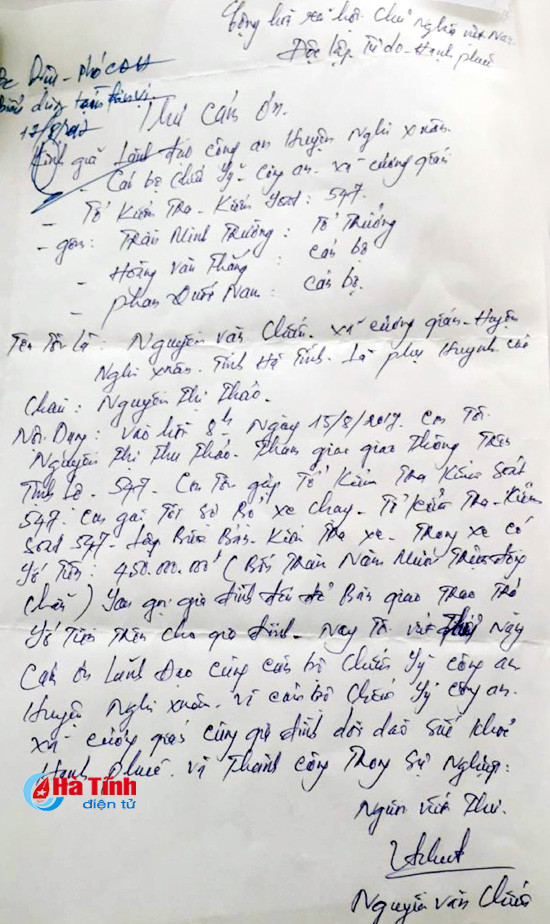 Cộng hòa xã hội Chủ nghĩa việt Nam.
Độc lập Tự do - Hạnh phúc
Đc Dịu - phó CAH
Biểu dương tại đơn vị.
17/8/2017
Thư cảm ơn.
Kính gửi Lãnh đạo công an Huyện Nghi xuân.
- Cán bộ chiến sỹ - Công an - xã cương gián
- Tổ Kiểm Tra - Kiểm soát: 547.
- gồm: Trần Minh Trường: Tổ Trưởng
- Hoàng Văn Thắng: cán bộ
- phan Đước Nam: cán bộ.
Tên Tôi là: Nguyễn văn Chiến. xã cương gián - Huyện
Nghi xuân. Tỉnh Hà Tĩnh. Là phụ Huynh của
Cháu: Nguyễn Thị Thảo.
Nội Dung: vào hồi 8h Ngày 15/8/2017. Con Tôi
Nguyễn Thị Thu Thảo. Tham gia giao Thông Trên
Tỉnh Lộ - 547. Con Tôi gặp Tổ Kiểm Tra Kiểm Soát
547. Con gái Tôi sợ Bỏ xe chạy - Tổ Kiểm Tra - Kiểm
Soát 547 - Lập Biên Bản - Kiểm Tra xe - Trong xe có
số Tiền: 450.000.000đ (Bốn Trăm Năm Mươi Triệu đồng
chẵn) Sau gọi gia đình đến để Bàn giao Trao Trả
số Tiền Trên cho gia đình - Nay Tôi viết Thư Này
Cảm ơn Lãnh Đạo cùng cán bộ Chiến sỹ công an
Huyện Nghi xuân. và cán bộ chiến sỹ công an.
xã cương gián cùng gia đình dồi dào sức khỏe
Hạnh phúc. và Thành công Trong sự Nghiệp:
Người viết Thư.
Nguyễn văn Chiến
Hà Tĩnh
điện tử